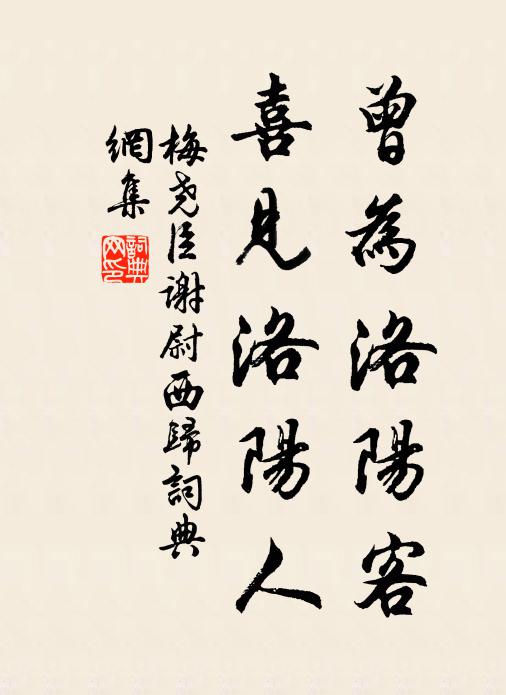 曾為洛陽客
喜見洛陽人
梅堯臣謝尉西歸詞典
網集
詞典
网印